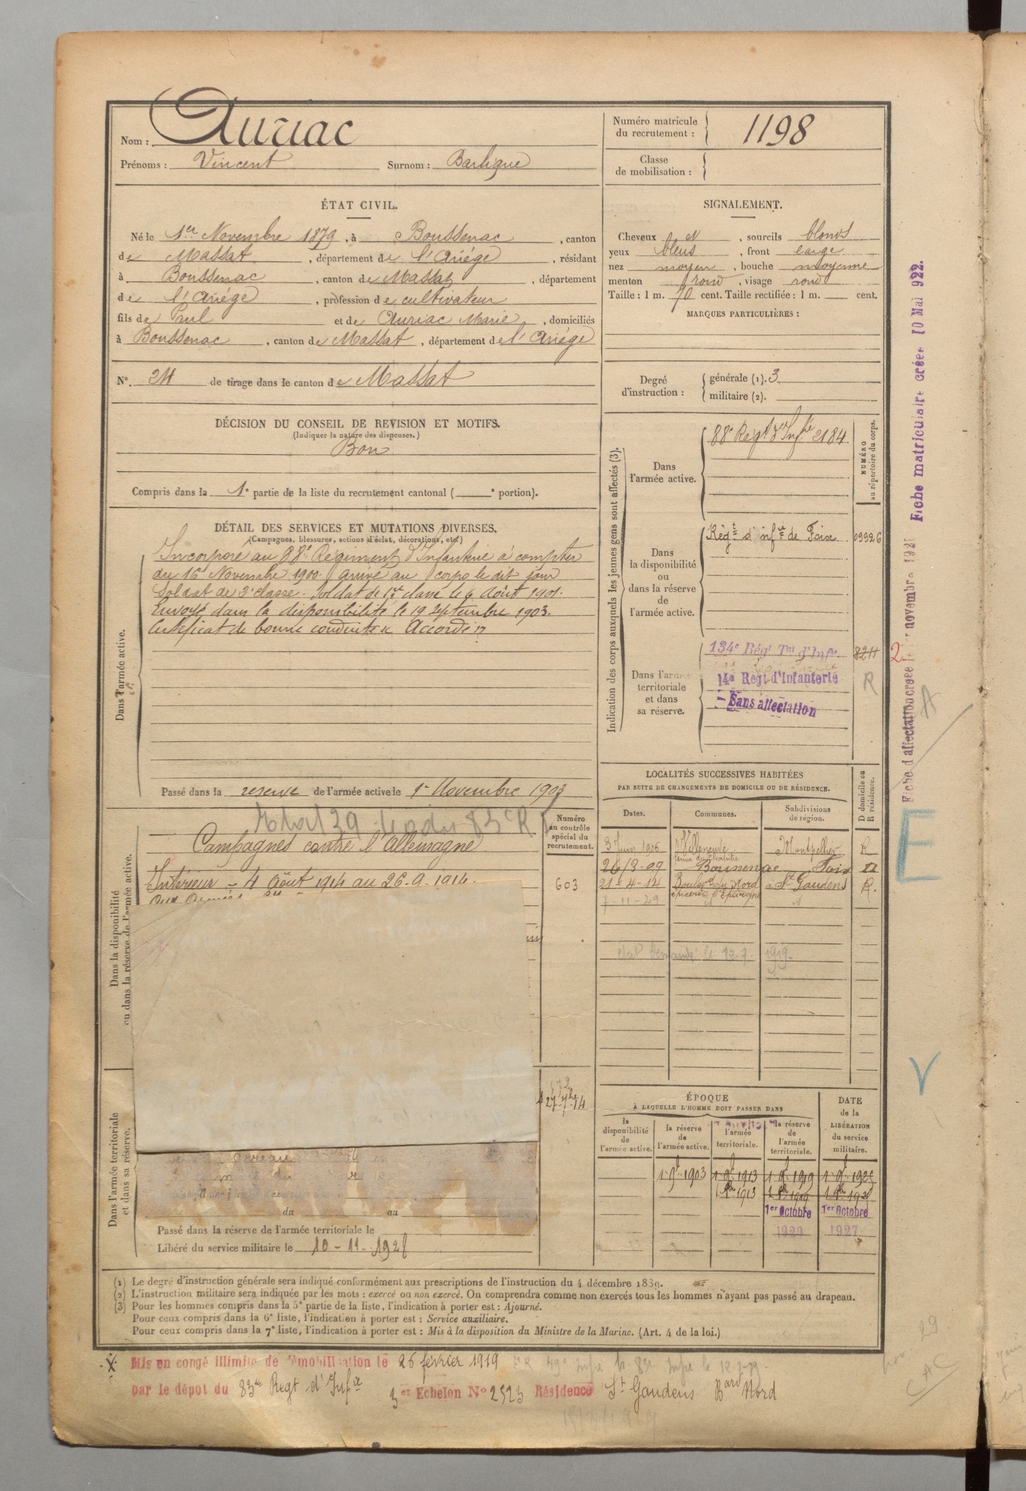 Nom : Auriac
Prénoms : Vincent Surnom : Barlique
Numéro matricule du recrutement : 1198
Classe de mobilisation :
ÉTAT CIVIL.
Né le 1er Novembre 1879, à Boussenac, canton
de Massat, département de l'Ariège, résidant
à Boussenac, canton de Massat
de l'Ariège, profession de cultivateur
fils de Paul et de Auriac Marie, domiciliés
à Boussenac, canton de Massat, département de l'Ariège
N°. 24 de tirage dans le canton de Massat
SIGNALEMENT.
Cheveux et, sourcils blonds
yeux bleus, front large
nez moyen, bouche moyenne
menton rond, visage rond
Taille : 1 m. 70 cent. Taille rectifiée : 1 m. cent.
MARQUES PARTICULIÈRES :
Degré d'instruction : générale (1). 3
militaire (2).
DÉCISION DU CONSEIL DE REVISION ET MOTIFS.
(Indiquer la nature des dispenses.)
Bon
Compris dans la 1e partie de la liste du recrutement cantonal ( e portion).
DÉTAIL DES SERVICES ET MUTATIONS DIVERSES.
(Campagnes, blessures, actions d'éclat, décorations, etc.)
Dans l'armée active.
Incorporé au 88e Régiment d'Infanterie à compter
du 16 Novembre 1900. Arrivé au corps le dit jour
Soldat de 2e classe. Soldat de 1re classe le 6 Août 1901.
Envoyé dans la disponibilité le 19 Septembre 1903.
Certificat de bonne conduite Accordé
Passé dans la réserve de l'armée active le 1er Novembre 1903
Indication des corps auxquels les jeunes gens sont affectés (3).
NUMÉRO au répertoire du corps.
Dans l'armée active.
88e Régt d'Infie 2184
Dans la disponibilité ou dans la réserve de l'armée active.
Régt d'infie de Foix 09926
Dans l'armée territoriale et dans sa réserve.
134e Régt Tal d'Infie 8211
14e Regt d'Infanterie R
Sans affectation
Fiche matriculaire créée 10 Mai 922.
Fiche d'affectation créée novembre 1921
A
Dans la disponibilité ou dans la réserve de l'armée active.
Campagnes contre l'Allemagne
Intérieur - 4 Août 1914 au 26-9-1914
Numéro au contrôle spécial du recrutement.
603
27-7-14
LOCALITÉS SUCCESSIVES HABITÉES
PAR SUITE DE CHANGEMENTS DE DOMICILE OU DE RÉSIDENCE.
Dates. Communes. Subdivisions de région. D domicile ou R résidence.
3 Juin 1906 Villeneuve Montpellier R
26/3-09 Boussenac Foix D
21-4-12 Boulevard Nord St Gaudens R.
7-11-29
1919.
ÉPOQUE
À LAQUELLE L'HOMME DOIT PASSER DANS
la disponibilité de l'armée active.
la réserve de l'armée active.
l'armée territoriale.
la réserve de l'armée territoriale.
DATE de la LIBÉRATION du service militaire.
1903 1913 1919
1913
1er Octobre 1er Octobre
1920 1927
Dans l'armée territoriale et dans sa réserve.
du au
Passé dans la réserve de l'armée territoriale le
Libéré du service militaire le 10-11-1928
(1) Le degré d'instruction générale sera indiqué conformément aux prescriptions de l'instruction du 4 décembre 1889.
(2) L'instruction militaire sera indiquée par les mots : exercé ou non exercé. On comprendra comme non exercés tous les hommes n'ayant pas passé au drapeau.
(3) Pour les hommes compris dans la 5e partie de la liste, l'indication à porter est : Ajourné.
Pour ceux compris dans la 6e liste, l'indication à porter est : Service auxiliaire.
Pour ceux compris dans la 7e liste, l'indication à porter est : Mis à la disposition du Ministre de la Marine. (Art. 4 de la loi.)
Mis en congé illimité de démobilisation le 26 février 1919
par le dépôt du 83me Regt d'Infie 3er Echelon No 2323 Résidence St Gaudens Bard Nord